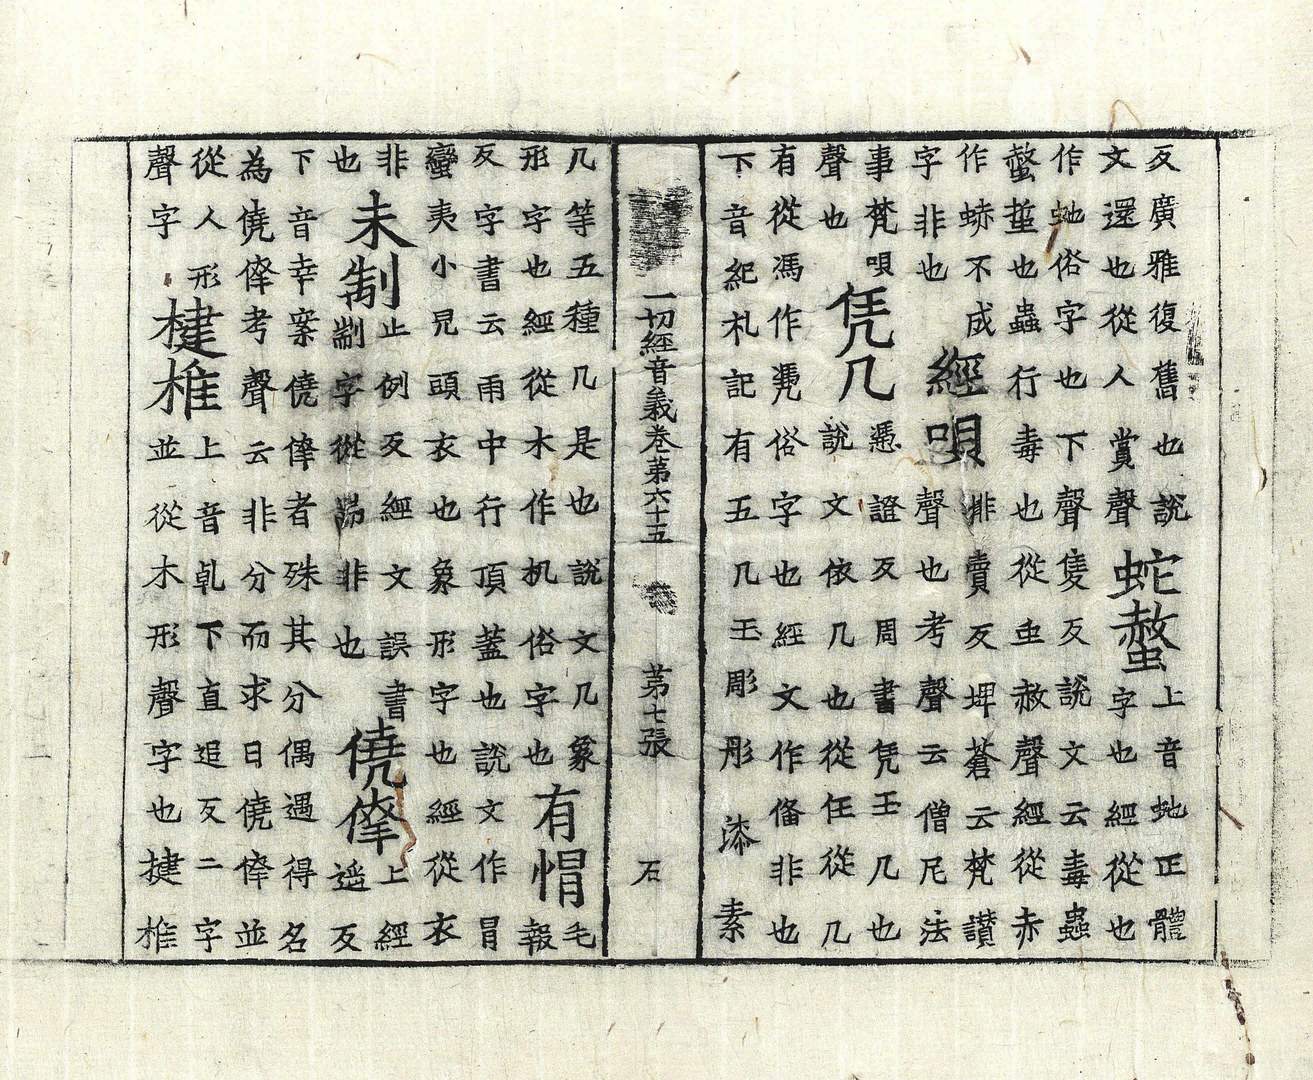 反廣雅復舊也説
文還也從人賞聲
蛇螫
上音虵正體
字也經從也
作虵俗字也下聲隻反説文云毒蟲
螫蜇也蟲行毒也從虫赦聲經從赤
作蛶不成
字非也
經唄
排賣反埤蒼云梵讃
聲也考聲云僧尼法
事梵唄
聲也
凭几
憑證反周書凭玉几也
説文依几也從任從几
有從馮作凴俗字也經文作俻非也
下音紀札記有五几玉彫彤漆素
一切經音義卷第六十五 第七張 石
几等五種几是也説文几象
形字也經從木作机俗字也
有帽
毛
報
反字書云兩中行頂蓋也説文作冃
蠻夷小兒頭衣也象形字也經從衣
非
也
未制
止例反經文誤書
制字從非也
僥倖
上經
遥反
下音幸案僥倖者殊其分偶遇得名
為僥倖考聲云非分而求曰僥倖並
從人形
聲字
楗椎
上音乹下直追反二字
並從木形聲字也揵椎